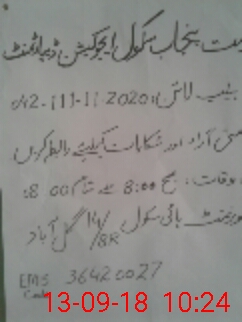 پنجاب سکول ایجوکیشن ڈیپارٹمنٹ
ہیلپ لائن: 042-111-11-2020
آراء اور شکایات کیلئے رابطہ کریں
اوقات: صبح 8:00 سے شام 8:00
ہائی سکول 14/8R گل آباد
EMS 36420027
Code
13-09-18 10:24